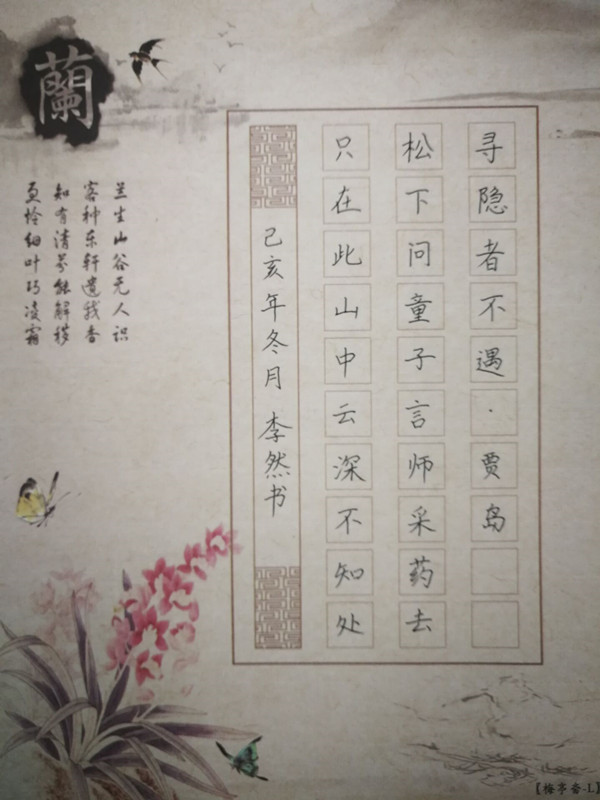 寻隐者不遇·贾岛
松下问童子言师采药去
只在此山中云深不知处
己亥年冬月 李然书
蘭
兰生山谷无人识
客种东轩遗我香
知有清芬能解秽
更怜细叶巧凌霜